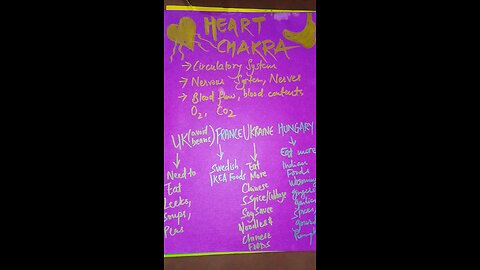 HEART
CHAKRA
→ Circulatory System
→ Nervous System, Nerves
→ Blood flow, blood contents
O2, CO2
UK (avoid beans) FRANCE UKRAINE HUNGARY
Need to
Eat
Leeks,
Soups,
Peas
Swedish
IKEA Foods
Eat
More
Chinese
5 Spice/Cabbage
Soy Sauce
Noodles &
Chinese
FOODS
Eat more
Indian
Foods